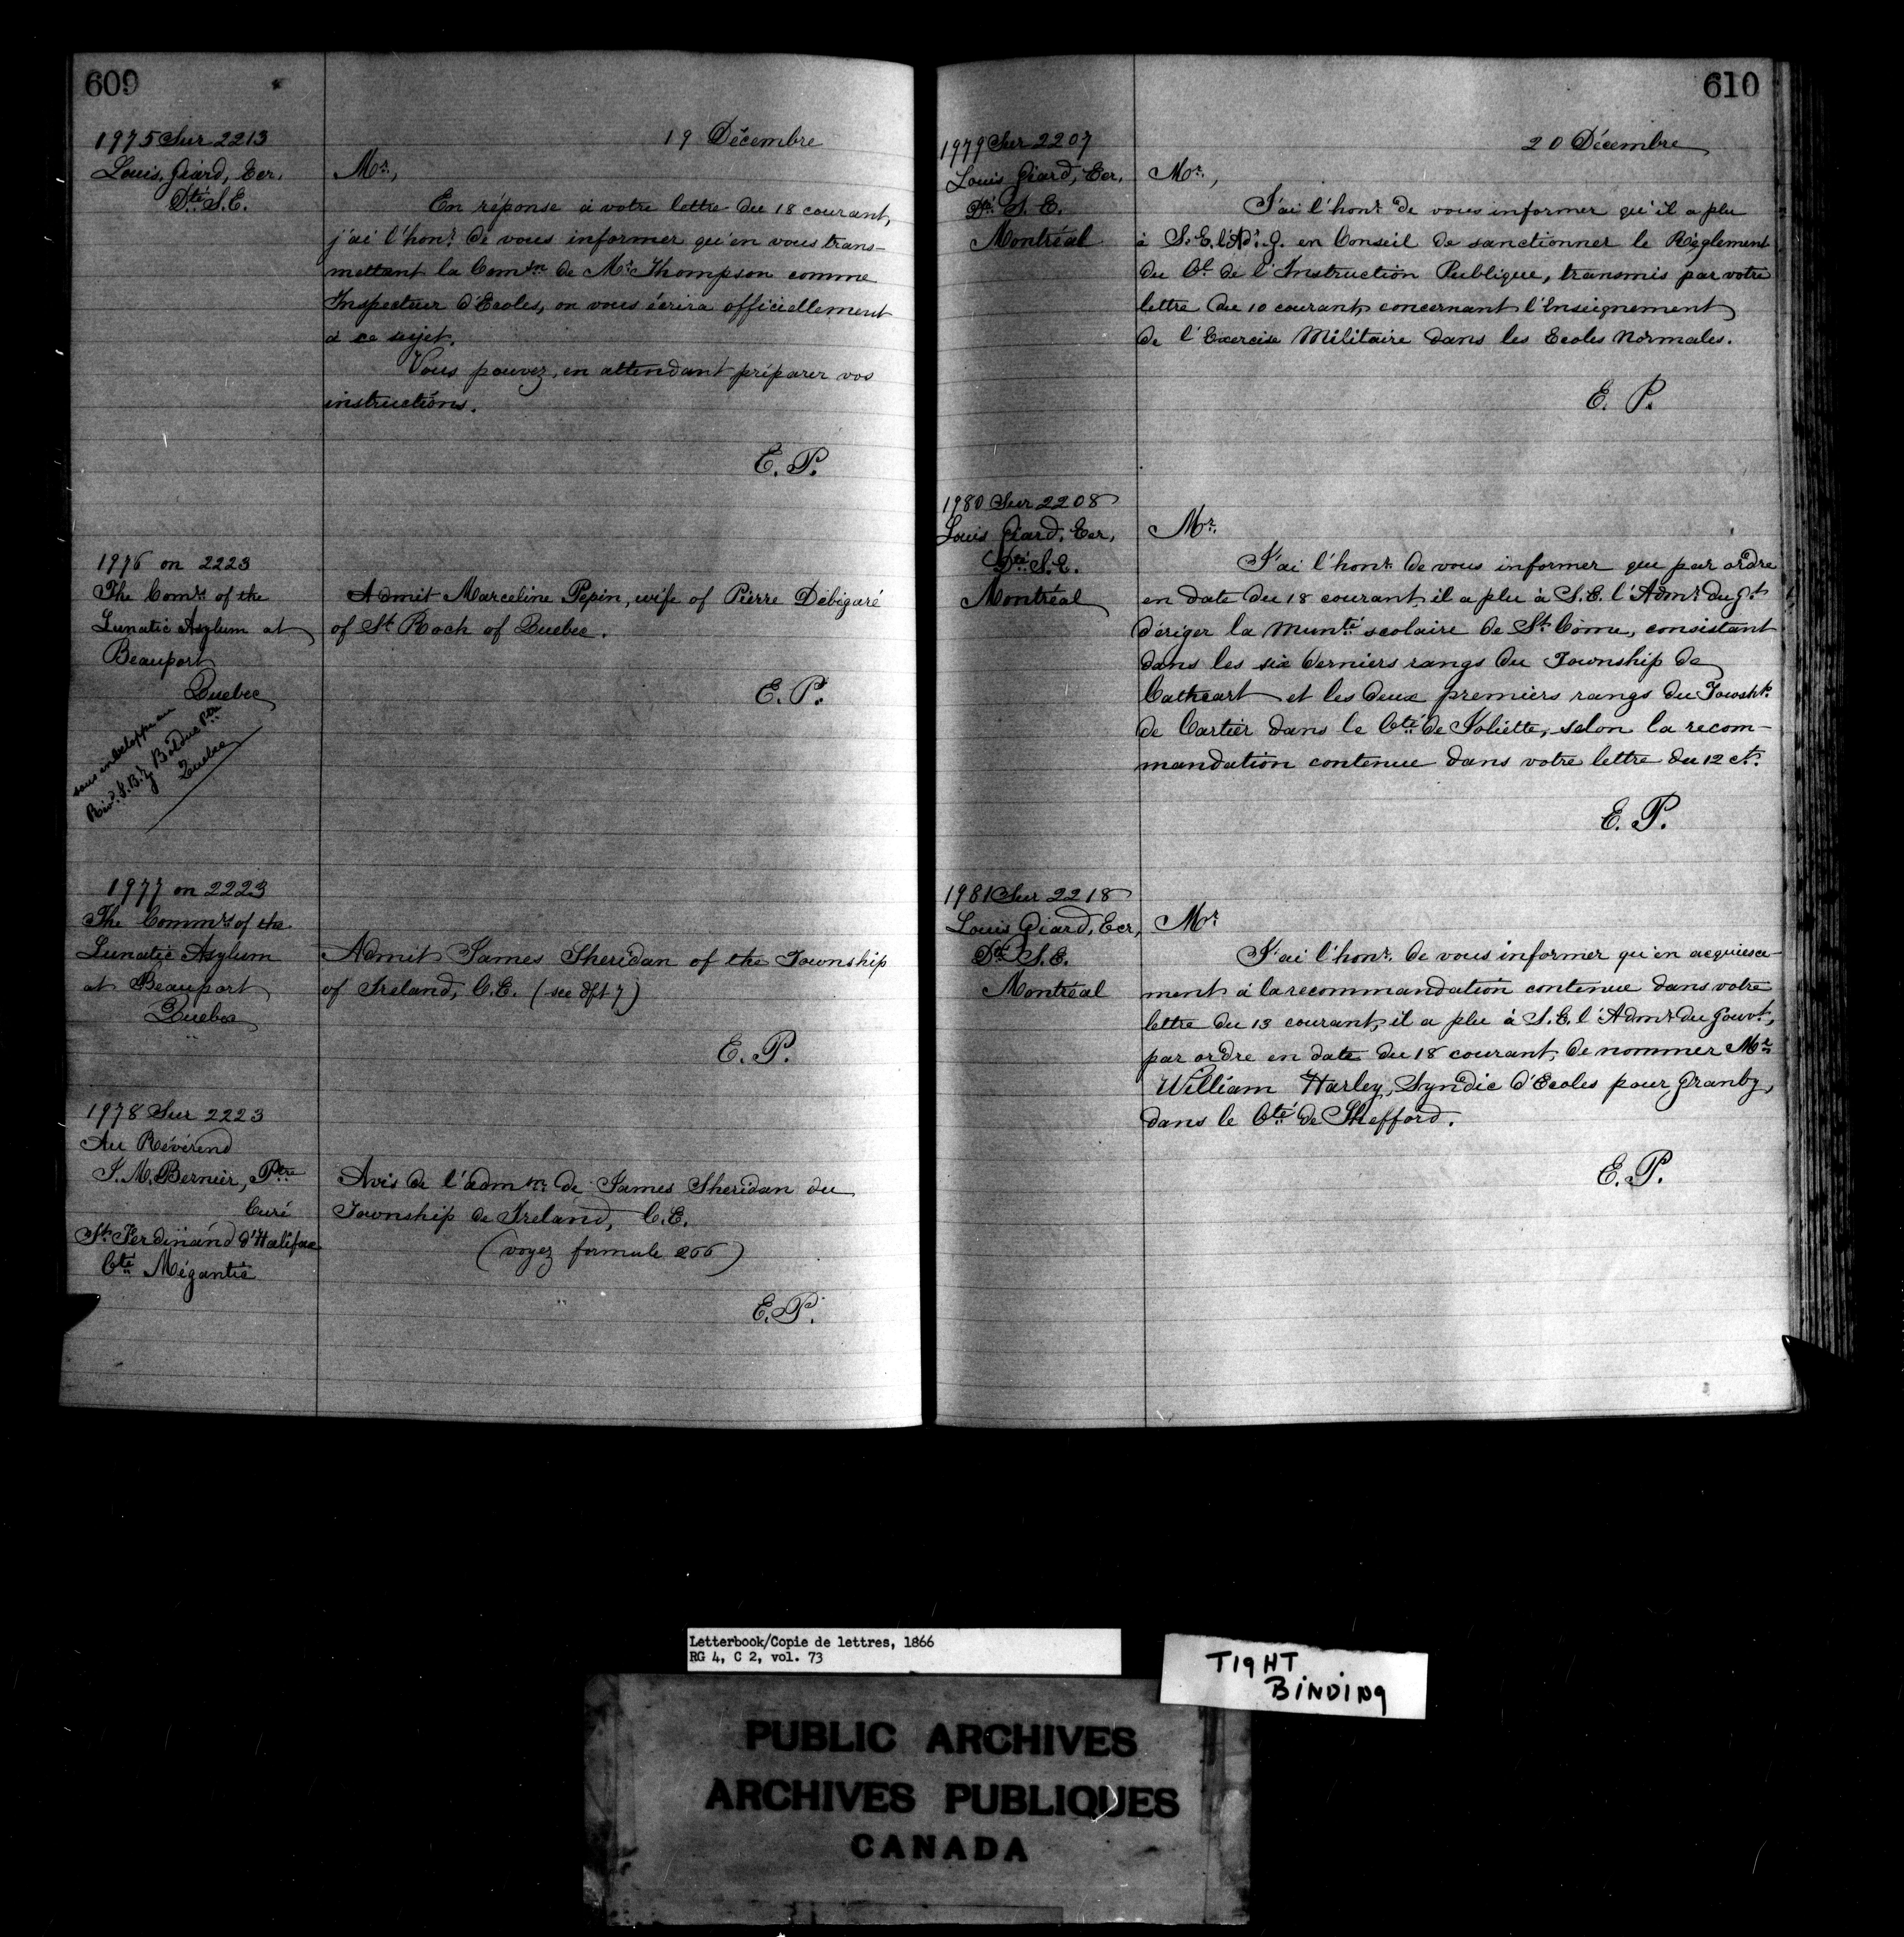 609
19 Décembre
1975 Sur 2213
Louis Giard, Ecr.
Dté S.E.
Mr.,
En réponse à votre lettre du 18 courant,
j'ai l'honr. de vous informer qu'en vous trans-
mettant la Comsn. de Mr. Thompson comme
Inspecteur d'Ecoles, on vous écrira officiellement
à ce sujet.
Vous pouvez, en attendant préparer vos
instructions.
E. P.
1976 on 2223
The Comrs of the
Lunatic Asylum at
Beauport
Quebec
sous enveloppe au
Revd. J. Bz. Bolduc Ptre
Quebec
Admit Marceline Pepin, wife of Pierre Debigaré
of St Roch of Quebec.
E. P.
1977 on 2223
The Commrs of the
Lunatic Asylum
at Beauport
Quebec
Admit James Sheridan of the Township
of Ireland, C.E. (see dft 7)
E. P.
1978 Sur 2223
Au Révérend
J. M. Bernier, Ptre
Curé
St. Ferdinand d'Halifax
Cté Mégantic
Avis de l'admsn. de James Sheridan du
Township de Ireland, C.E.
(voyez formule 266)
E. P.
610
20 Décembre
1979 Sur 2207
Louis Giard, Ecr,
Dté S. E.
Montréal
Mr.,
J'ai l'honr. de vous informer qu'il a plu
à S.E. l'Ad. G. en Conseil de sanctionner le Règlement
du Cl. de l'Instruction Publique, transmis par votre
lettre du 10 courant, concernant l'Enseignement
de l'Exercise Militaire dans les Ecoles Normales.
E. P.
1980 Sur 2208
Louis Giard, Ecr,
Dté S.E.
Montréal
Mr.
J'ai l'honr. de vous informer que par ordre
en date du 18 courant, il a plu à S.E. l'Admr. du Gt
d'ériger la Munté scolaire de St. Côme, consistant
dans les six derniers rangs du Township de
Cathcart et les deux premiers rangs du Townshp.
de Cartier dans le Cté de Joliette, selon la recom-
mandation contenue dans votre lettre du 12 ct.
E. P.
1981 Sur 2218
Louis Giard, Ecr,
Dté S.E.
Montréal
Mr
J'ai l'honr. de vous informer qu'en acquiesce-
ment à la recommandation contenue dans votre
lettre du 13 courant, il a plu à S.E. l'Admr. du Gouvt,
par ordre en date du 18 courant, de nommer Mr
William Harley, Syndic d'Ecoles pour Granby,
dans le Cté de Shefford.
E. P.
Letterbook/Copie de lettres, 1866
RG 4, C 2, vol. 73
TIGHT
BINDING
PUBLIC ARCHIVES
ARCHIVES PUBLIQUES
CANADA